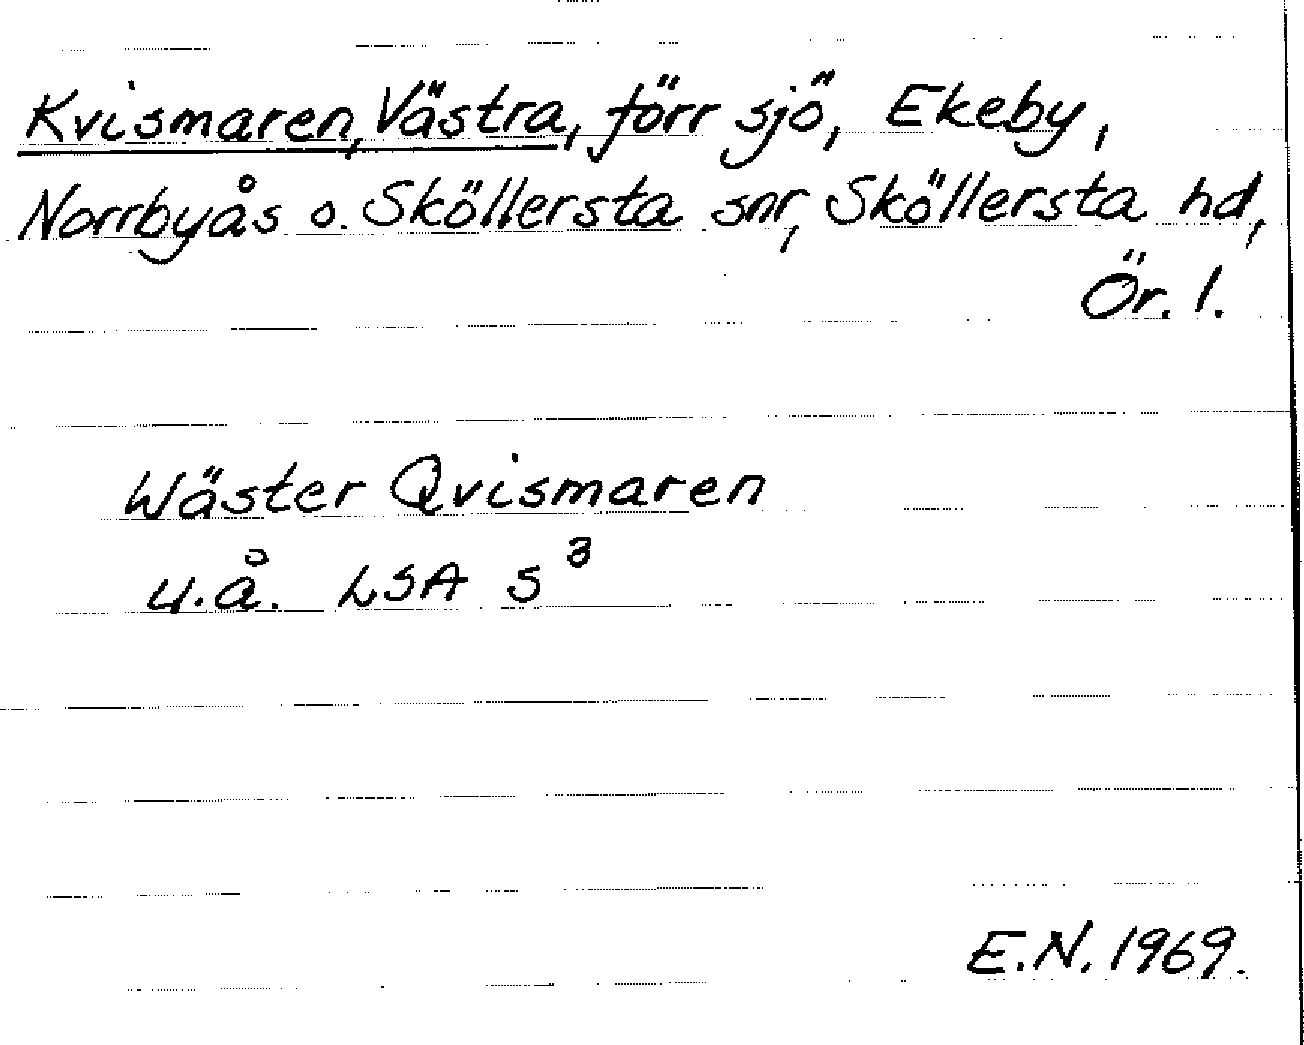 Kvismaren, Västra, förr sjö, Ekeby,
Norrbyås o. Sköllersta snr, Sköllersta hd,
Ör. l.
Wäster Qvismaren
u.å. LSA S³
E.N. 1969.